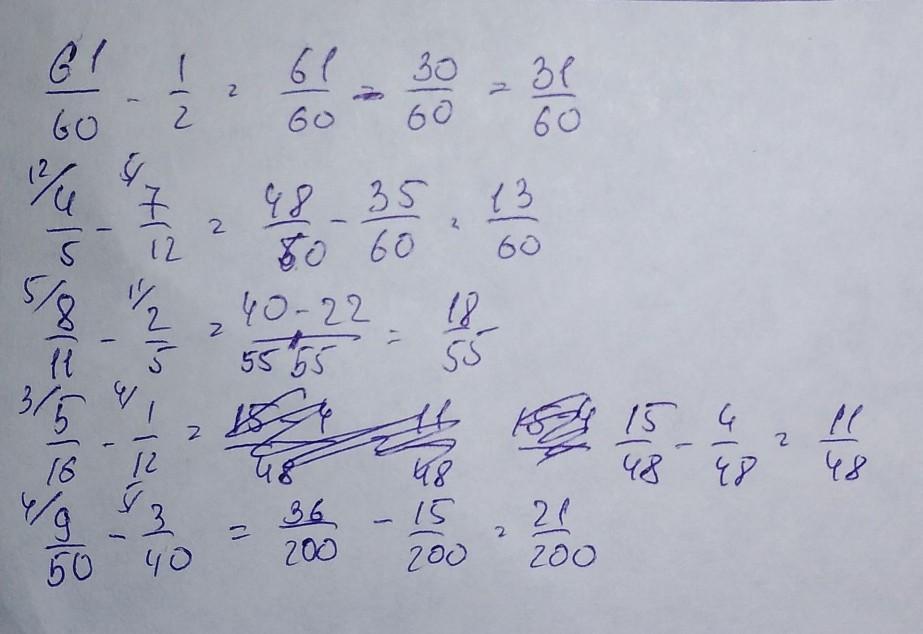 61/60 - 1/2 = 61/60 - 30/60 = 31/60
12/ 4/5 - 5/ 7/12 = 48/60 - 35/60 = 13/60
5/ 8/11 - 11/ 2/5 = 40-22/55 55 = 18/55
3/ 5/16 - 4/ 1/12 = 15-4/48 11/48 15/48 - 4/48 = 11/48
4/ 9/50 - 5/ 3/40 = 36/200 - 15/200 = 21/200